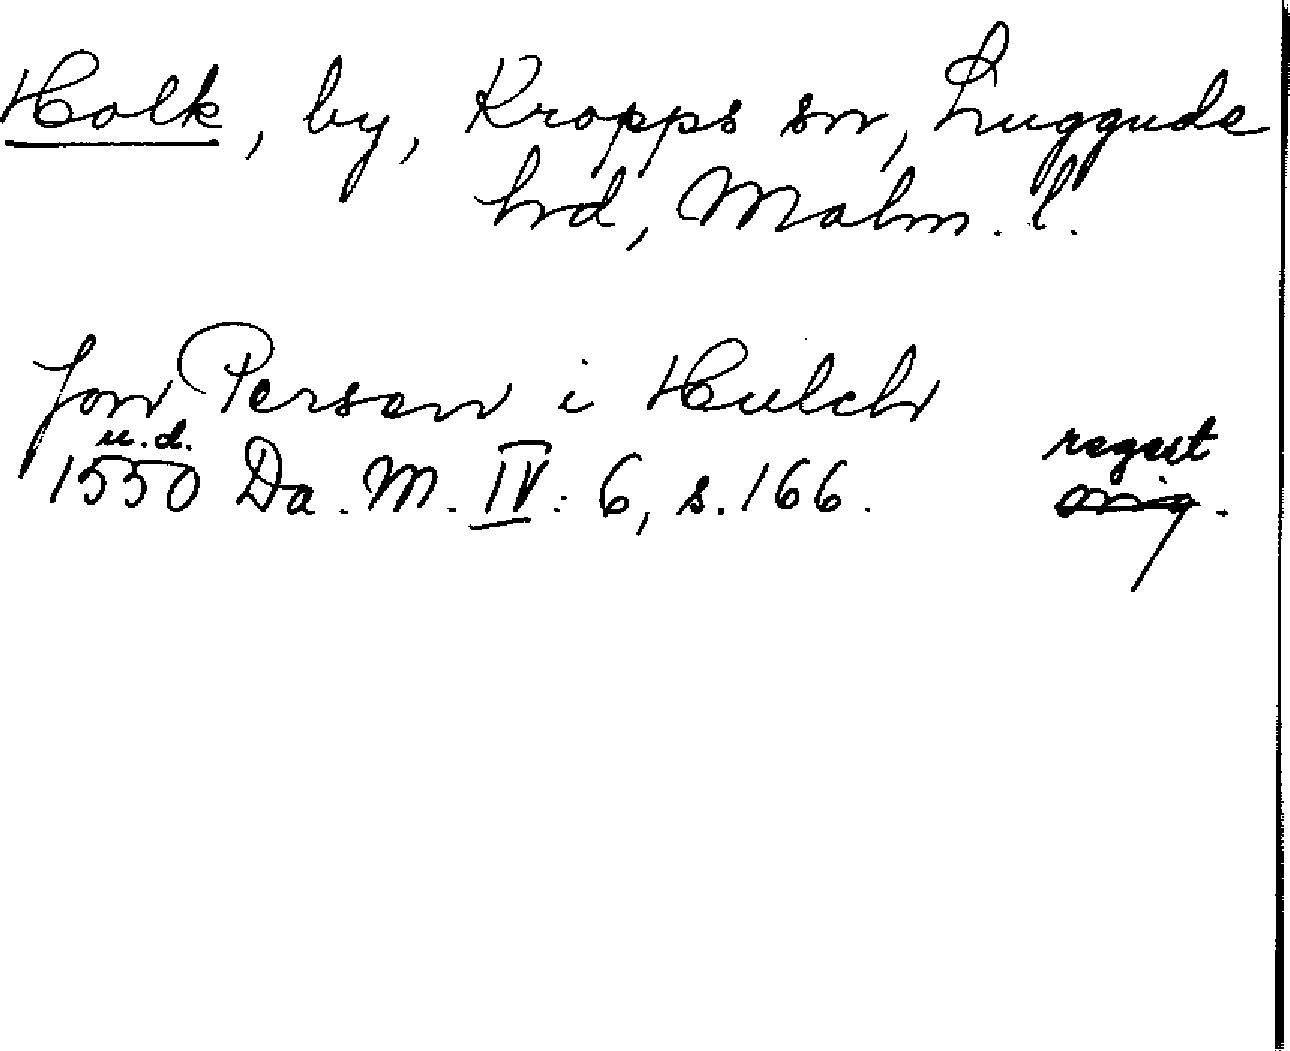 Holk, by, Kropps sn, Luggude
hrd, Malm. l.
Jon Person i Hulch
u.d.
1550 Da. M. IV: 6, s. 166.
regest
orig.